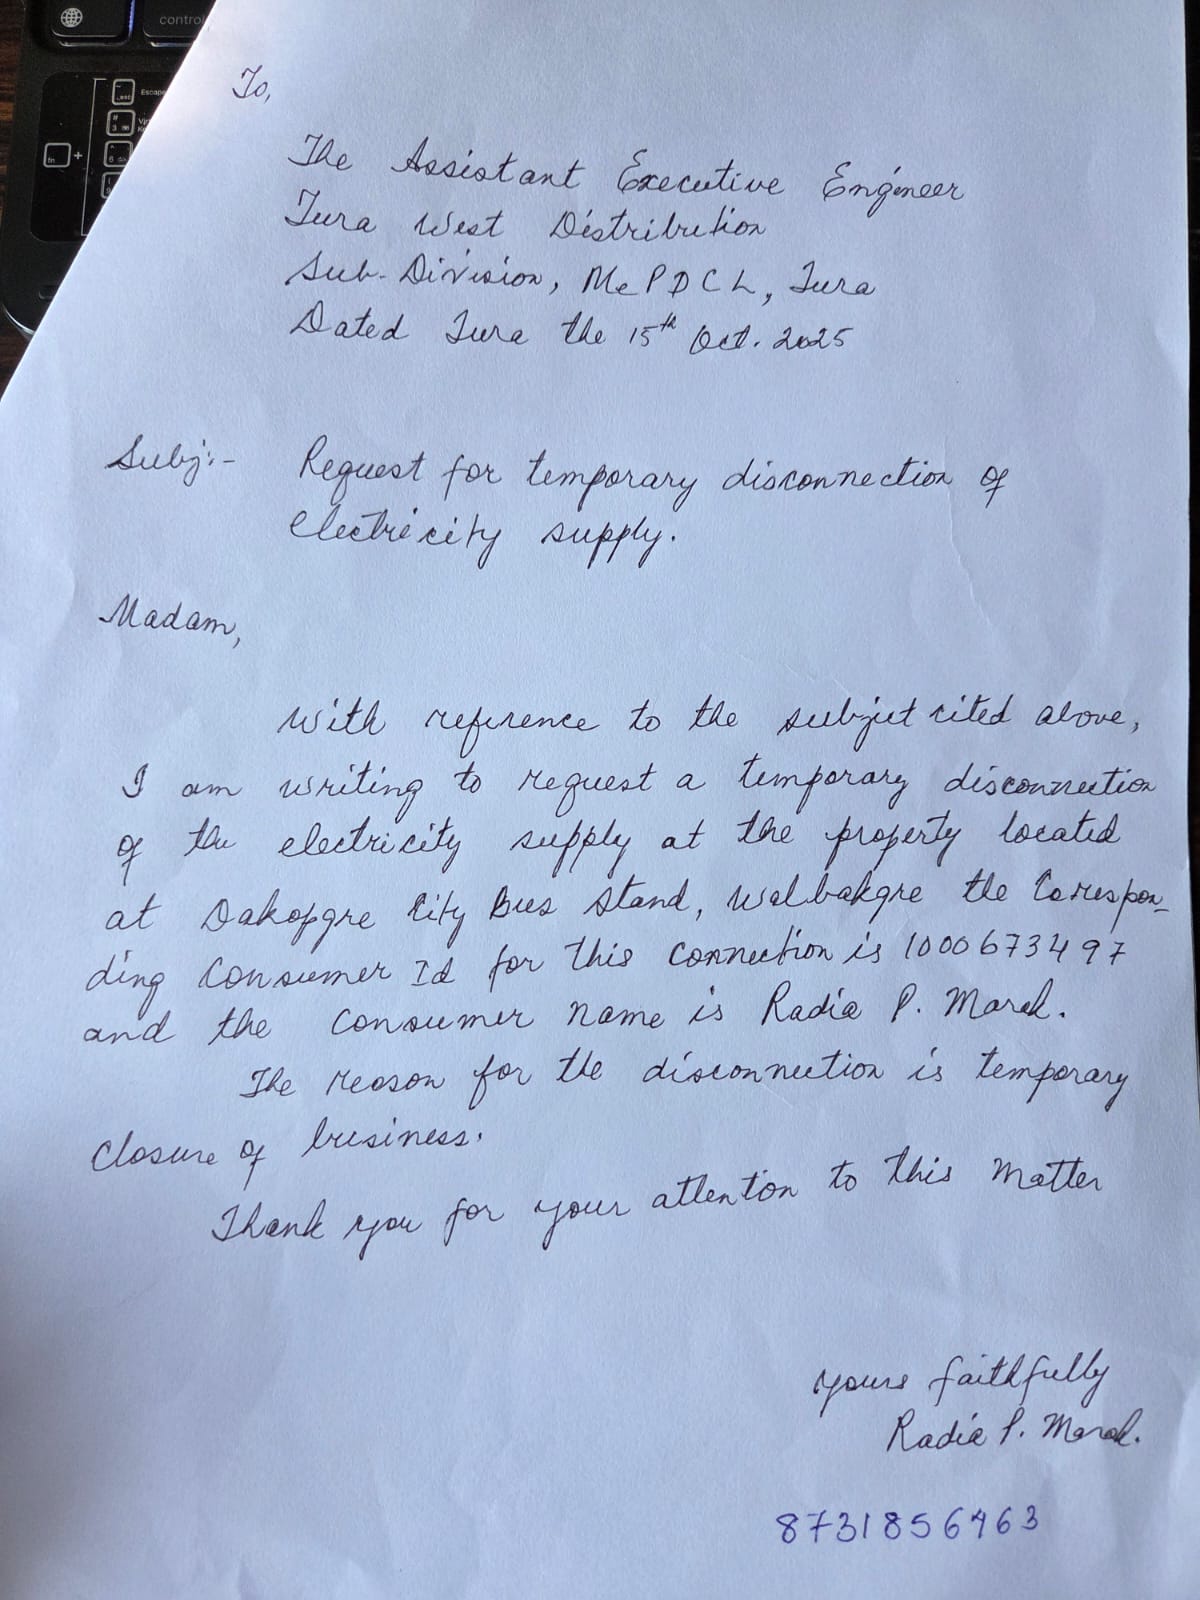 control
Escape
fn
+
To,
The Assistant Executive Engineer
Tura West Distribution
Sub-Division, MePDCL, Tura
Dated Tura the 15th Oct. 2025
Subj:- Request for temporary disconnection of
electricity supply.
Madam,
With reference to the subject cited above,
I am writing to request a temporary disconnection
of the electricity supply at the property located
at Dakopgre City Bus Stand, Walbakgre the Corespon-
ding Consumer Id for this connection is 1000673497
and the Consumer name is Radia P. Marak.
The reason for the disconnection is temporary
closure of business.
Thank you for your attention to this matter
yours faithfully
Radia P. Marak.